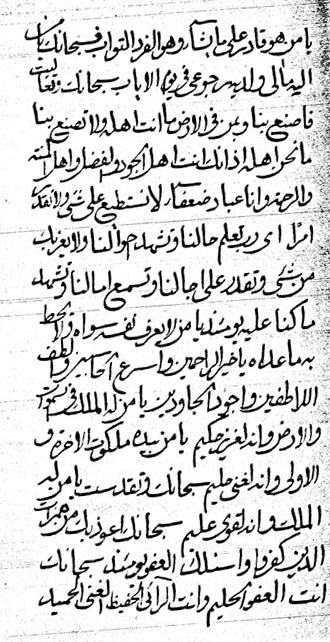 يا من هو قادر على ما يشآء وهو الفرد التواب فسبحانك من
اليه مالى ولديه رجوعى فى يوم الاياب سبحانك وتعاليت
فاصنع بنا وبمن فى الارض ما انت اهله ولا تصنع بنا
ما نحن اهله اذ انك انت اهل الجود والفضل واهل
والرحمة وانا عباد ضعفآء لا نستطيع على شئ ولا نقدر
امرًا اى رب تعلم حالنا وتشهد احوالنا ولا يعزب
من شئ وتقدر على اجالنا وتسمع امالنا وتشهد
ما كنا عليه يومئذ يا من لا يعرف نفسه سواه ولا يحط
به ما عداه يا خير الراحمين واسرع الحاسبين والطف
اللاطفين واجود الجاودين يا من له الملك فى السموات
والارض وانه لعزيز حكيم يا من بيده ملكوت الاخرة و
الاولى وانه لغنى حليم سبحانك وتقدست يا من له
الملك وانه لقوى عليم سبحانك اعوذ بك من
الذين كفروا واسئلك العفو يومئذ سبحانك
انت العفو الحليم وانت الرآئى الحفيظ الغنى الحميد